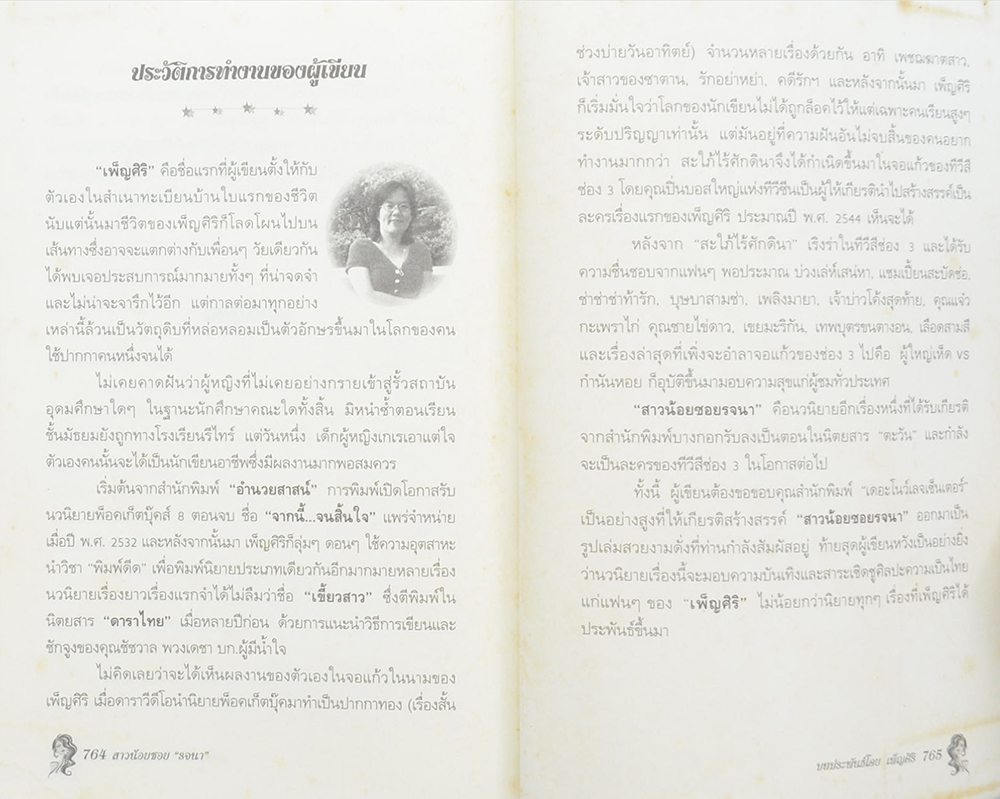 ประวัติการทำงานของผู้เขียน
“เพ็ญศิริ” คือชื่อแรกที่ผู้เขียนตั้งให้กับ
ตัวเองในสำเนาทะเบียนบ้านใบแรกของชีวิต
นับแต่นั้นมาชีวิตของเพ็ญศิริก็โลดโผนไปบน
เส้นทางซึ่งอาจจะแตกต่างกับเพื่อนๆ วัยเดียวกัน
ได้พบเจอประสบการณ์มากมายทั้งๆ ที่น่าจดจำ
และไม่น่าจะจารึกไว้อีก แต่กาลต่อมาทุกอย่าง
เหล่านี้ล้วนเป็นวัตถุดิบที่หล่อหลอมเป็นตัวอักษรขึ้นมาในโลกของคน
ใช้ปากกาคนหนึ่งจนได้
ไม่เคยคาดฝันว่าผู้หญิงที่ไม่เคยอย่างกรายเข้าสู่รั้วสถาบัน
อุดมศึกษาใดๆ ในฐานะนักศึกษาคณะใดทั้งสิ้น มิหนำซ้ำตอนเรียน
ชั้นมัธยมยังถูกทางโรงเรียนรีไทร์ แต่วันหนึ่ง เด็กผู้หญิงเกเรเอาแต่ใจ
ตัวเองคนนั้นจะได้เป็นนักเขียนอาชีพซึ่งมีผลงานมากพอสมควร
เริ่มต้นจากสำนักพิมพ์ “อำนวยสาสน์” การพิมพ์เปิดโอกาสรับ
นวนิยายพ็อคเก็ตบุ๊คส์ 8 ตอนจบ ชื่อ “จากนี้...จนสิ้นใจ” แพร่จำหน่าย
เมื่อปี พ.ศ. 2532 และหลังจากนั้นมา เพ็ญศิริก็ลุ่มๆ ดอนๆ ใช้ความอุตสาหะ
นำวิชา “พิมพ์ดีด” เพื่อพิมพ์นิยายประเภทเดียวกันอีกมากมายหลายเรื่อง
นวนิยายเรื่องยาวเรื่องแรกจำได้ไม่ลืมว่าชื่อ “เขี้ยวสาว” ซึ่งตีพิมพ์ใน
นิตยสาร “ดาราไทย” เมื่อหลายปีก่อน ด้วยการแนะนำวิธีการเขียนและ
ชักจูงของคุณชัชวาล พวงเดชา บก.ผู้มีน้ำใจ
ไม่คิดเลยว่าจะได้เห็นผลงานของตัวเองในจอแก้วในนามของ
เพ็ญศิริ เมื่อดาราวีดีโอนำนิยายพ็อคเก็ตบุ๊คมาทำเป็นปากกาทอง (เรื่องสั้น
764 สาวน้อยซอย “รจนา”
ช่วงบ่ายวันอาทิตย์) จำนวนหลายเรื่องด้วยกัน อาทิ เพชฌฆาตสาว,
เจ้าสาวของซาตาน, รักอย่าหย่า, คดีรักฯ และหลังจากนั้นมา เพ็ญศิริ
ก็เริ่มมั่นใจว่าโลกของนักเขียนไม่ได้ถูกล็อคไว้ให้แต่เฉพาะคนเรียนสูงๆ
ระดับปริญญาเท่านั้น แต่มันอยู่ที่ความฝันอันไม่จบสิ้นของคนอยาก
ทำงานมากกว่า สะใภ้ไร้ศักดินาจึงได้กำเนิดขึ้นมาในจอแก้วของทีวีสี
ช่อง 3 โดยคุณปิ่นบอสใหญ่แห่งทีวีซีนเป็นผู้ให้เกียรตินำไปสร้างสรรค์เป็น
ละครเรื่องแรกของเพ็ญศิริ ประมาณปี พ.ศ. 2544 เห็นจะได้
หลังจาก “สะใภ้ไร้ศักดินา” เริงร่าในทีวีสีช่อง 3 และได้รับ
ความชื่นชอบจากแฟนๆ พอประมาณ บ่วงเล่ห์เสน่หา, แชมเปี้ยนสะบัดช่อ,
ช่าช่าช่าท้ารัก, บุษบาสามช่า, เพลิงมายา, เจ้าบ่าวโค้งสุดท้าย, คุณแจ๋ว
กะเพราไก่ คุณชายไข่ดาว, เขยมะริกัน, เทพบุตรขนตางอน, เลือดสามสี
และเรื่องล่าสุดที่เพิ่งจะอำลาจอแก้วของช่อง 3 ไปคือ ผู้ใหญ่เห็ด VS
กำนันหอย ก็อุบัติขึ้นมามอบความสุขแก่ผู้ชมทั่วประเทศ
“สาวน้อยซอยรจนา” คือนวนิยายอีกเรื่องหนึ่งที่ได้รับเกียรติ
จากสำนักพิมพ์บางกอกรับลงเป็นตอนในนิตยสาร “ตะวัน” และกำลัง
จะเป็นละครของทีวีสีช่อง 3 ในโอกาสต่อไป
ทั้งนี้ ผู้เขียนต้องขอขอบคุณสำนักพิมพ์ “เดอะโนว์เลจเซ็นเตอร์”
เป็นอย่างสูงที่ให้เกียรติสร้างสรรค์ “สาวน้อยซอยรจนา” ออกมาเป็น
รูปเล่มสวยงามดั่งที่ท่านกำลังสัมผัสอยู่ ท้ายสุดผู้เขียนหวังเป็นอย่างยิ่ง
ว่านวนิยายเรื่องนี้จะมอบความบันเทิงและสาระเชิดชูศิลปะความเป็นไทย
แก่แฟนๆ ของ “เพ็ญศิริ” ไม่น้อยกว่านิยายทุกๆ เรื่องที่เพ็ญศิริได้
ประพันธ์ขึ้นมา
บทประพันธ์โดย เพ็ญศิริ 765